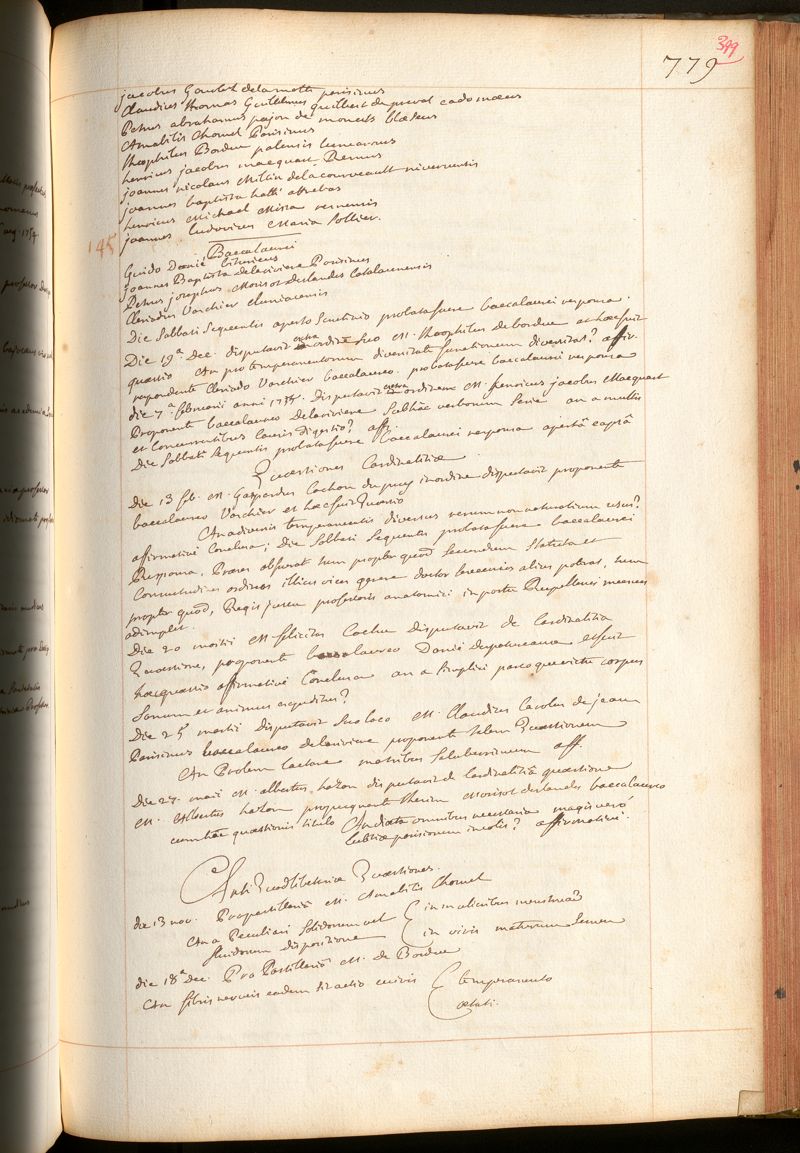 399
779
jacobus Gourlez delamotte parisinus
Claudius Thomas Guillelmus guilbert de preval cadomaeus
Petrus abrahamus pajon de moncets blaeseus
Amabilis Chomel Parisinus
theophilus Bordeu palensis
henricus jacobus macquart Remus
joannes nicolaus Millin delacourveault nivernensis
joannes baptista hatté atrebas
henricus Michael Missa
joannes ludovicus Maria Sollier.
145
Baccalaurei
Guido Danié bituricus
joannes Baptista delariviere Parisinus
Petrus josephus Morisot Deslandes Catalaunensis
Cleriadus Varchier
Die Sabbati Sequentis aperto Scrutinio probata fuere baccalaurei responsa.
Die 19a Dec. disputavit extra ordinem Suo M. Theophilus de bordeu at haec fuit
quaestio An pro temperamentorum diversitate functionum diversitas? affir.
respondente Cleriado Varchier baccalaureo. probata fuere baccalaurei responsa
die 7a februarii anni disputavit extra ordinem M. henricus jacobus Macquart
Proponente baccalaureo Delariviere Sub hac verborum Serie an a multis
et concurrentibus causis digestio? aff.
Die Sabbati Sequentis probata fuere baccalaurei responsa aperta capsâ
Quaestiones Cardinalitiae
Die 13 feb. M. Gaspardus Cochon dupuy in ordine disputavit proponente
baccalaureo Varchier et haec fuit Quaestio
An a diversis temperamentis diversus rerum non naturalium usus?
affirmative Conclusa; Die Sabbati Sequentis probata fuere baccalaurei
Responsa, Praeses absfuerat tum propter quod Secundum Statuta et
Consuetudines ordines illius vices gerere doctor alius poterat, tum
propter quod, Regis jussu professoris anatomici in portu Rupellensi munus
adimplet.
Die 20 martii M. felicitas Cochu disputavit de Cardinalitia
Quaestione, proponente baccalaureo Danié et fuit
haec quaestio affirmative Conclusa an a Simplici parcoque victu corpus
Sanum et animus acquiritur?
Die 25 martii disputavit Suo loco M. Claudius Lacoles de jean
Parisinus baccalaureo delariviere proponente talem Quaestionem
An Prolem lactare matribus Saluberrimum aff.
Die 27. M. albertus hazon disputavit de Cardinalitiâ quaestione
M. Albertus hazon propugnante thesim Morisot deslandes baccalaureo
cum hac quaestionis titulo An diaeta omnibus necessaria magis vero
lutetiae parisiorum incolis? affirmative.
Anti Quodlibetariae Quaestiones.
die 13 nov. Pro pastillariâ M. Amabilis Chomel
An a Peculiari Solidorum vel fluidorum dispositione { in mulieribus menstrua?
in viris maturum Semen
die 18a Dec. Pro Pastillariâ M. de Bordeu
An fibris nerveis eadem sit actio cuivis { temperamento
aetati.